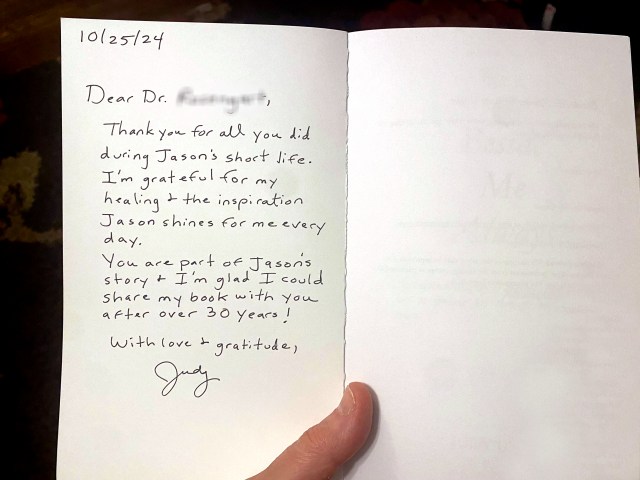 10/25/24
Dear Dr.
Thank you for all you did
during Jason's short life.
I'm grateful for my
healing & the inspiration
Jason shines for me every
day.
You are part of Jason's
story & I'm glad I could
share my book with you
after over 30 years!
With love & gratitude,
Judy
Me